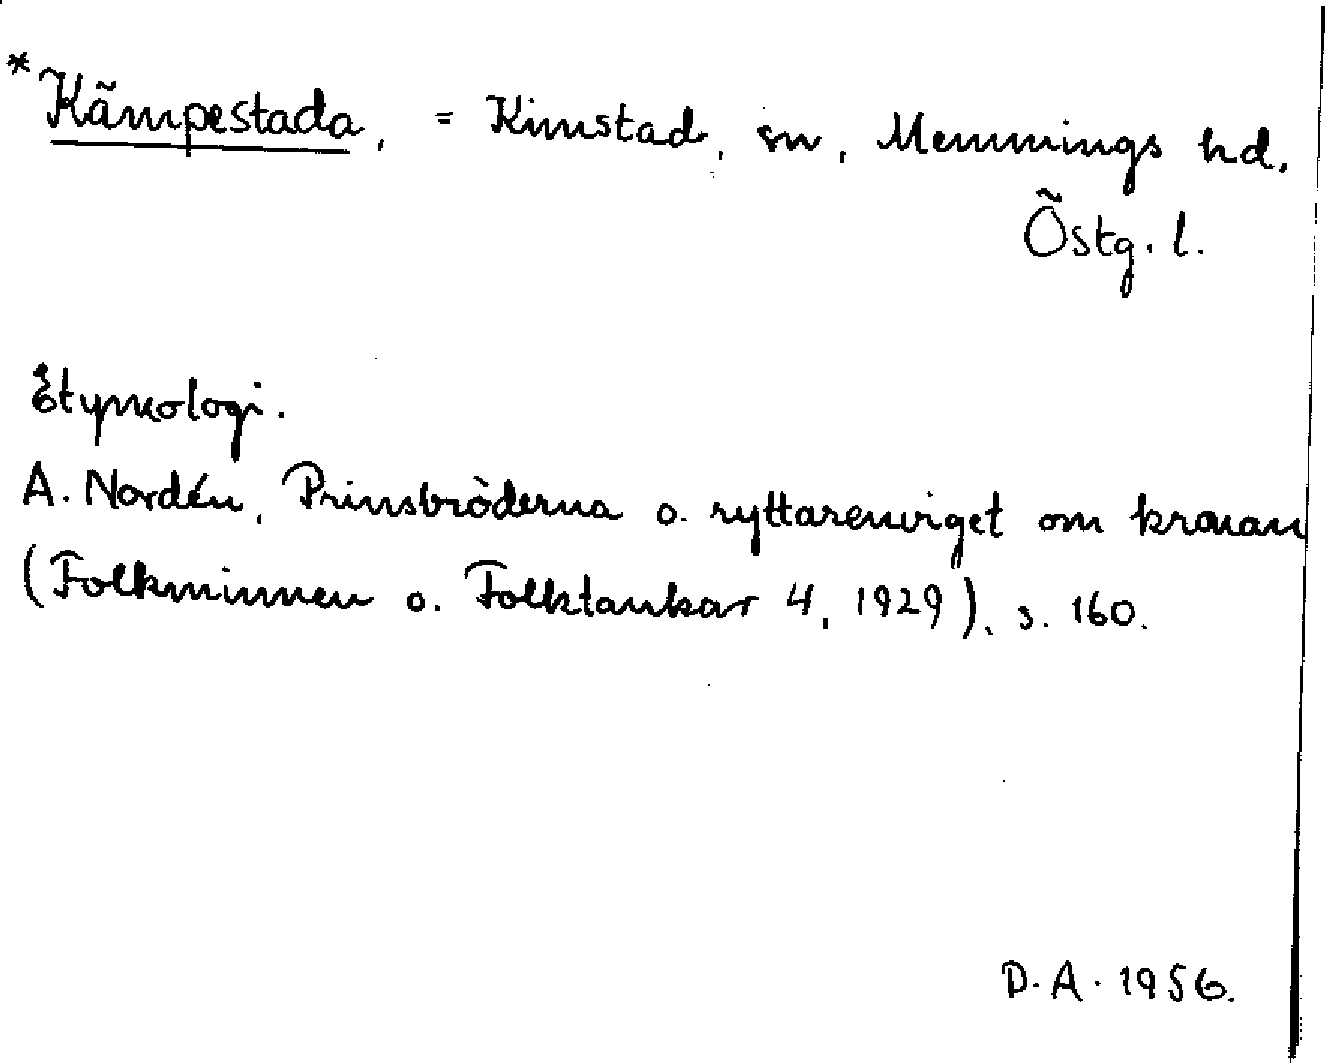 *Kämpestada, = Kimstad, sn, Memmings hd.
Östg. l.
Etymologi.
A. Nordén, Prinsbröderna o. ryttarenviget om kronan
(Folkminnen o. Folktankar 4, 1929), s. 160.
D. A. 1956.